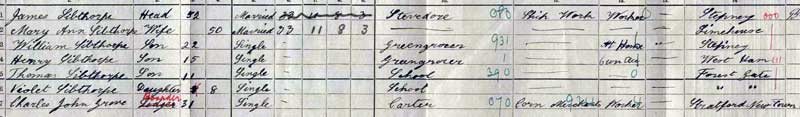 1 James Sibthorpe Head 52 Married 33 11 8 3 Stevedore 080 Ship Work Worker Stepney 000
2 Mary Ann Sibthorpe Wife 50 Married 33 11 8 3 Limehouse
3 William Sibthorpe Son 22 Single — Greengrocer 931 — At Home — Stepney
4 Henry Sibthorpe Son 15 Single — Greengrocer — West Ham
5 Thomas Sibthorpe Son 11 Single — School 390 — Forest Gate
6 Violet Sibthorpe Daughter 8 Single — School — " "
Boarder
7 Charles John Grove Lodger 31 Single — Carter 070 Corn Merchants Worker — Stratford New Town